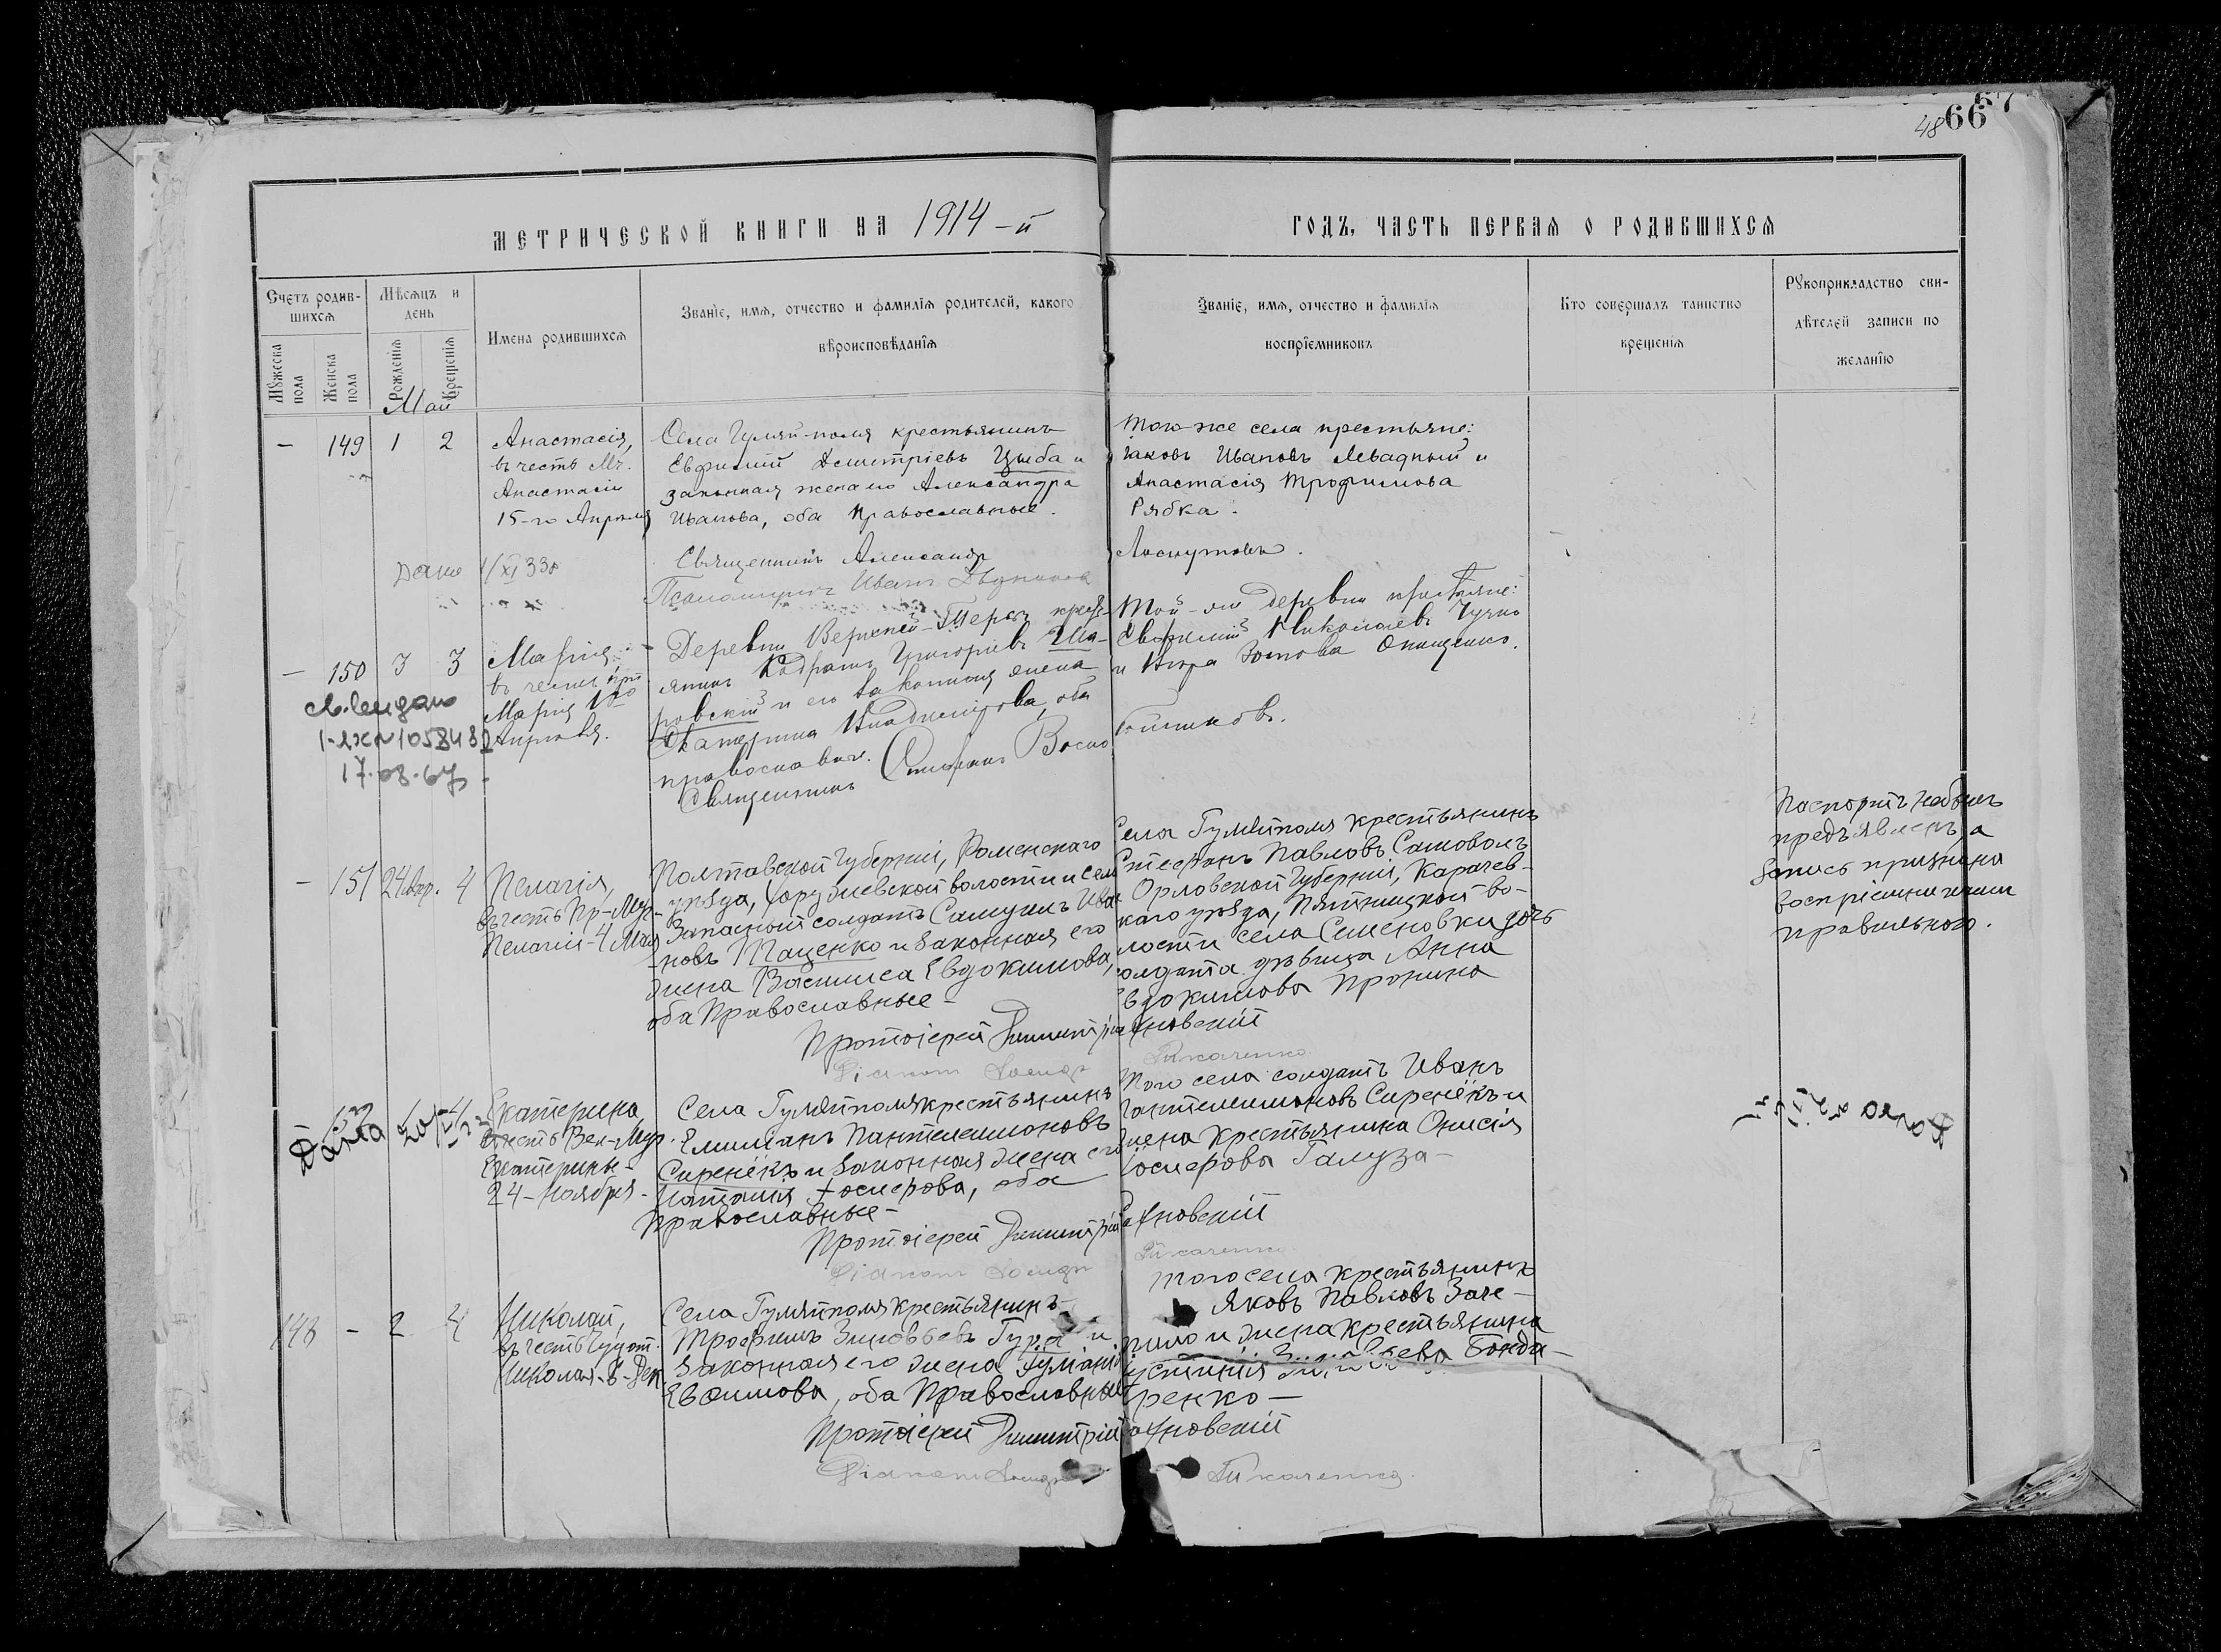 48 66
57
МЕТРИЧЕСКОЙ КНИГИ НА 1914-й
ГОДЪ, ЧАСТЬ ПЕРВАЯ О РОДИВШИХСЯ
Счетъ родив-
шихся
Мѣсяцъ и
день
Мужеска
пола
Женска
пола
Рожденія
Крещенія
Имена родившихся
Званіе, имя, отчество и фамилія родителей, какого
вѣроисповѣданія
Званіе, имя, отчество и фамилія
воспріемниковъ
Кто совершалъ таинство
крещенія
Рукоприкладство сви-
дѣтелей записи по
желанію
Май
— 149 1 2
Анастасія,
въ честь Мч.
Анастасіи
15-го Апрѣля
Села Гуляй-поля крестьянинъ
Евфимій Димитріевъ Цыба и
законная жена его Александра
Иванова, оба Православные.
Того-же села крестьяне:
Іаковъ Ивановъ Левадный и
Анастасія Трофимова
Рябка.
Священникъ Александръ
Лоскутовъ.
Псаломщикъ Иванъ
— 150 3 3
Марія
въ честь
Марія 1го
Апрѣля.
Деревни Верхней-Терсы кресть-
янинъ Григоріевъ Ша-
ровскій и его законная жена
Екатерина Владимірова, оба
православн.
Священникъ Стефанъ Воско
бойниковъ.
Той-же деревни крестьяне:
Евфимій Николаевъ
и Вѣра Зотова Онищенко.
17.08.67
— 151 24 Апр. 4
Пелагія,
въ честь Пр-Муч-
Пелагіи-4 Мая
Полтавской Губерніи, Роменскаго
уѣзда, волости и села
Запасный солдатъ Самуилъ Ива
-новъ Пащенко и законная его
жена Васились Евдокимова,
оба Православные-
Протоіерей Димитрій
Діаконъ
Села Гуляйполя крестьянинъ
Стефанъ Павловъ Самоволъ
Орловской Губерніи, Карачев-
каго уѣзда, Пятницкой во-
лости села Семеновки дочь
солдата дѣвица Анна
Евдокимова Пронина
Ткаченко
Паспортъ небылъ
предъявленъ, а
запись признана
воспріемниками
правильною.
Екатерина
въ честь Вел-Муч.
Екатерины-
24-Ноября-
Села Гуляйполя крестьянинъ
Емиліанъ Пантелеимоновъ
Сиренёкъ и законная жена его
Наталія Іосифова, оба
Православные-
Протоіерей Димитрій
Діаконъ
Того села солдатъ Иванъ
Пантелеимоновъ Сиренёкъ и
жена крестьянина Онисія
Іосифова Галуза-
Ткаченко
148 — 2 4
Николай,
въ честь Чудот.
Николая-6-Дек
Села Гуляйполя крестьянинъ-
Трофимъ Зиновьевъ Гура и
законная его жена Іуліанія
Евѳимова, оба Православные
Протоіерей Димитрій
Діаконъ
Того села крестьянинъ
Яковъ Павловъ Заче-
пило и жена крестьянина
Устинія Зиновьева Бонда-
ренко-
Ткаченко